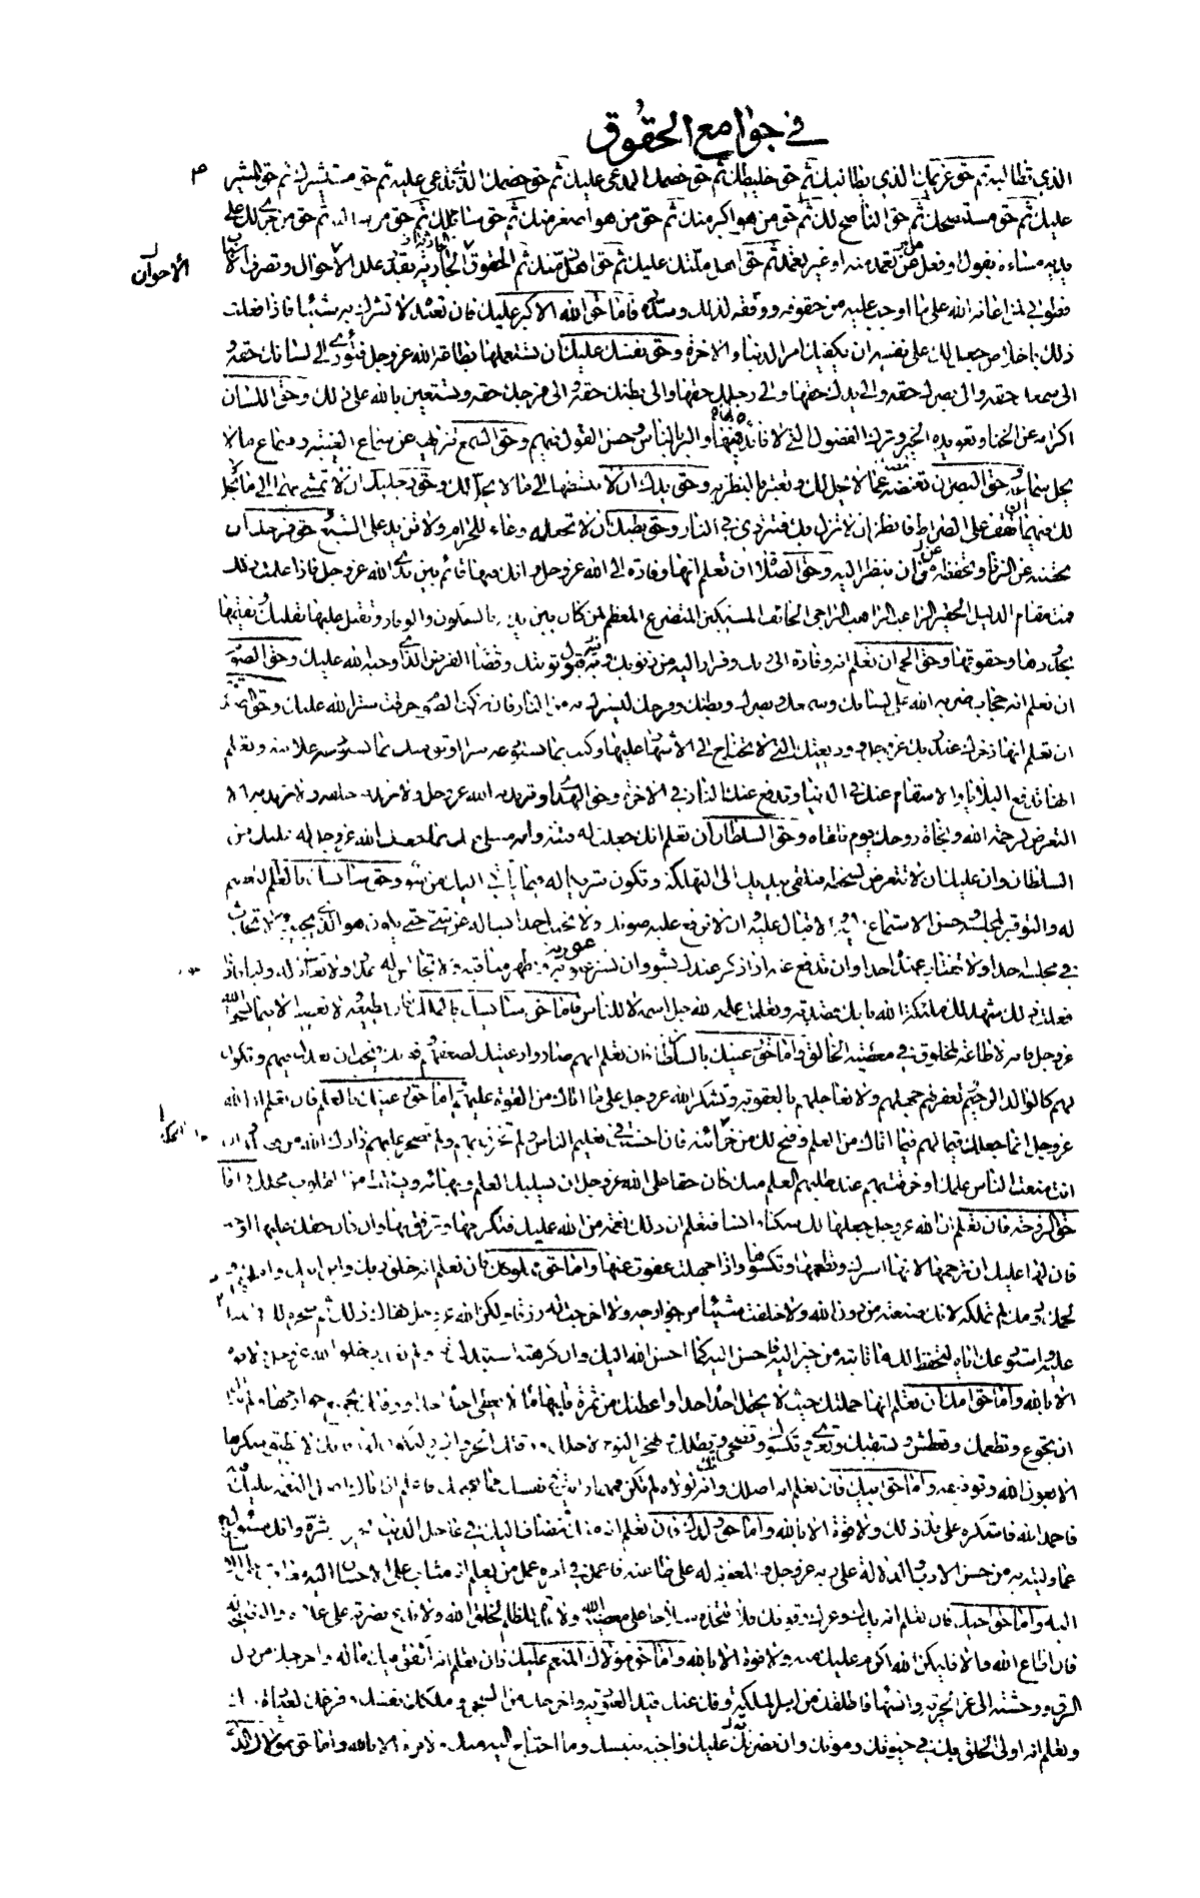 في جوامع الحقوق
الذي تطالبه ثم حق غريمك الذي يطالبك ثم حق خليطك ثم حق خصمك المدعي عليك ثم حق خصمك الذي تدعي عليه ثم حق مستشيرك ثم حق المشير
عليك ثم حق مستنصحك ثم حق الناصح لك ثم حق من هو اكبر منك ثم حق من هو اصغر منك ثم حق سائلك ثم حق من سالته ثم حق من جرى لك على
يديه مساءة بقول او فعل عن تعمد منه او غير تعمد ثم حق اهل ملتك عليك ثم حق اهل ذمتك ثم الحقوق الجارية بقدر علل الاحوال وتصرف الاسباب
الاحوال
فطوبى لمن اعانه الله على ما اوجب عليه من حقوقه ووفقه لذلك وسدده فاما حق الله الاكبر عليك فان تعبده لا تشرك به شيئا فاذا فعلت
ذلك باخلاص جعل لك على نفسه ان يكفيك امر الدنيا والاخرة وحق نفسك عليك ان تستعملها بطاعة الله عز وجل فتؤدي الى لسانك حقه و
الى سمعك حقه والى بصرك حقه والى يدك حقها والى رجلك حقها والى بطنك حقه والى فرجك حقه وتستعين بالله على ذلك وحق اللسان
اكرامه عن الخنا وتعويده الخير وترك الفضول التي لا فائدة فيها والبر بالناس وحسن القول فيهم وحق السمع تنزيهه عن سماع الغيبة وسماع ما لا
يحل سماعه وحق البصر ان تغضه عما لا يحل لك وتعتبر بالنظر به وحق يدك ان لا تبسطها الى ما لا يحل لك وحق رجليك ان لا تمشي بهما الى ما لا يحل
لك فبهما تقف على الصراط فانظر ان لا تزل بك فتتردى في النار وحق بطنك ان لا تجعله وعاء للحرام ولا تزيد على الشبع وحق فرجك ان
تحصنه عن الزنا وتحفظه من ان ينظر اليه وحق الصلاة ان تعلم انها وفادة الى الله عز وجل وانك فيها قائم بين يدي الله عز وجل فاذا علمت ذلك
قمت مقام الذليل الحقير الراغب الراهب الراجي الخائف المستكين المتضرع المعظم لمن كان بين يديه بالسكون والوقار وتقبل عليها بقلبك وتقيمها
بحدودها وحقوقها وحق الحج ان تعلم انه وفادة الى ربك وفرار اليه من ذنوبك وفيه قبول توبتك وقضاء الفرض الذي اوجبه الله عليك وحق الصوم
ان تعلم انه حجاب ضربه الله على لسانك وسمعك وبصرك وبطنك وفرجك ليسترك به من النار فان تركت الصوم خرقت ستر الله عليك وحق الصدقة
ان تعلم انها ذخرك عند ربك عز وجل ووديعتك التي لا تحتاج الى الاشهاد عليها وكنت بما تستودعه سرا اوثق منك بما تستودعه علانية وتعلم
انها تدفع البلايا والاسقام عنك في الدنيا وتدفع عنك النار في الاخرة وحق الهدي ان تريد به الله عز وجل ولا تريد خلقه ولا تريد به الا
التعرض لرحمة الله ونجاة روحك يوم تلقاه وحق السلطان ان تعلم انك جعلت له فتنة وانه مبتلى فيك بما جعله الله عز وجل له عليك من
السلطان وان عليك ان لا تتعرض لسخطه فتلقي بيدك الى التهلكة وتكون شريكا له فيما ياتي اليك من سوء وحق سائسك بالعلم التعظيم
له والتوقير لمجلسه وحسن الاستماع اليه والاقبال عليه وان لا ترفع عليه صوتك ولا تجيب احدا يساله عن شيء حتى يكون هو الذي يجيب ولا تحدث
في مجلسه احدا ولا تغتاب عنده احدا وان تدفع عنه اذا ذكر عندك بسوء وان تستر عيوبه وتظهر مناقبه ولا تجالس له عدوا ولا تعادي له وليا فاذا
فعلت ذلك شهد لك ملائكة الله بانك قصدته وتعلمت علمه لله جل اسمه لا للناس واما حق سائسك بالملك فان تطيعه ولا تعصيه الا فيما يسخط الله
عز وجل فانه لا طاعة لمخلوق في معصية الخالق واما حق رعيتك بالسلطان فان تعلم انهم صاروا رعيتك لضعفهم وقوتك فيجب ان تعدل فيهم وتكون
لهم كالوالد الرحيم وتغفر لهم جهلهم ولا تعاجلهم بالعقوبة وتشكر الله عز وجل على ما اتاك من القوة عليهم واما حق رعيتك بالعلم فان تعلم ان الله
عز وجل انما جعلك قيما لهم فيما اتاك من العلم وفتح لك من خزائنه فان احسنت في تعليم الناس ولم تخرق بهم ولم تضجر عليهم زادك الله من فضله وان
انت منعت الناس علمك او خرقت بهم عند طلبهم العلم منك كان حقا على الله عز وجل ان يسلبك العلم وبهاءه ويسقط من القلوب محلك واما
حق الزوجة فان تعلم ان الله عز وجل جعلها لك سكنا وانسا فتعلم ان ذلك نعمة من الله عليك فتكرمها وترفق بها وان كان حقك عليها اوجب
فان لها عليك ان ترحمها لانها اسيرك وتطعمها وتكسوها واذا جهلت عفوت عنها واما حق مملوكك فان تعلم انه خلق ربك وابن ابيك وامك و
لحمك ودمك لم تملكه لانك صنعته من دون الله ولا خلقت شيئا من جوارحه ولا اخرجت له رزقا ولكن الله عز وجل كفاك ذلك ثم سخره لك
عليه واستودعك اياه ليحفظ لك ما تاتيه من خير اليه فاحسن اليه كما احسن الله اليك وان كرهته استبدلت به ولم تعذب خلق الله عز وجل ولا قوة
الا بالله واما حق امك ان تعلم انها حملتك حيث لا يحتمل احد احدا واعطتك من ثمرة قلبها ما لا يعطي احد احدا ووقتك بجميع جوارحها ولم تبال
ان تجوع وتطعمك وتعطش وتسقيك وتعرى وتكسوك وتضحى وتظلك وتهجر النوم لاجلك ووقتك الحر والبرد لتكون لها فانك لا تطيق شكرها
الا بعون الله وتوفيقه واما حق ابيك فان تعلم انه اصلك وانك لولاه لم تكن فمهما رايت في نفسك مما يعجبك فاعلم ان اباك اصل النعمة عليك
فاحمد الله واشكره على قدر ذلك ولا قوة الا بالله واما حق ولدك فان تعلم انه منك ومضاف اليك في عاجل الدنيا بخيره وشره وانك مسئول
عما وليته به من حسن الادب والدلالة على ربه عز وجل والمعونة له على طاعته فاعمل في امره عمل من يعلم انه مثاب على الاحسان اليه معاقب على الاساءة
اليه واما حق اخيك فان تعلم انه يدك وعزك وقوتك فلا تتخذه سلاحا على معصية الله ولا عدة للظلم لخلق الله ولا تدع نصرته على عدوه والنصيحة له
فان اطاع الله والا فليكن الله اكرم عليك منه ولا قوة الا بالله واما حق مولاك المنعم عليك فان تعلم انه انفق فيك ماله واخرجك من ذل
الرق ووحشته الى عز الحرية وانسها فاطلقك من اسر الملكة وفك عنك قيد العبودية واخرجك من السجن وملكك نفسك وفرغك لعبادة ربك
وتعلم انه اولى الخلق بك في حيوتك وموتك وان نصرته عليك واجبة بنفسك وما احتاج اليه منك ولا قوة الا بالله واما حق مولاك الذي